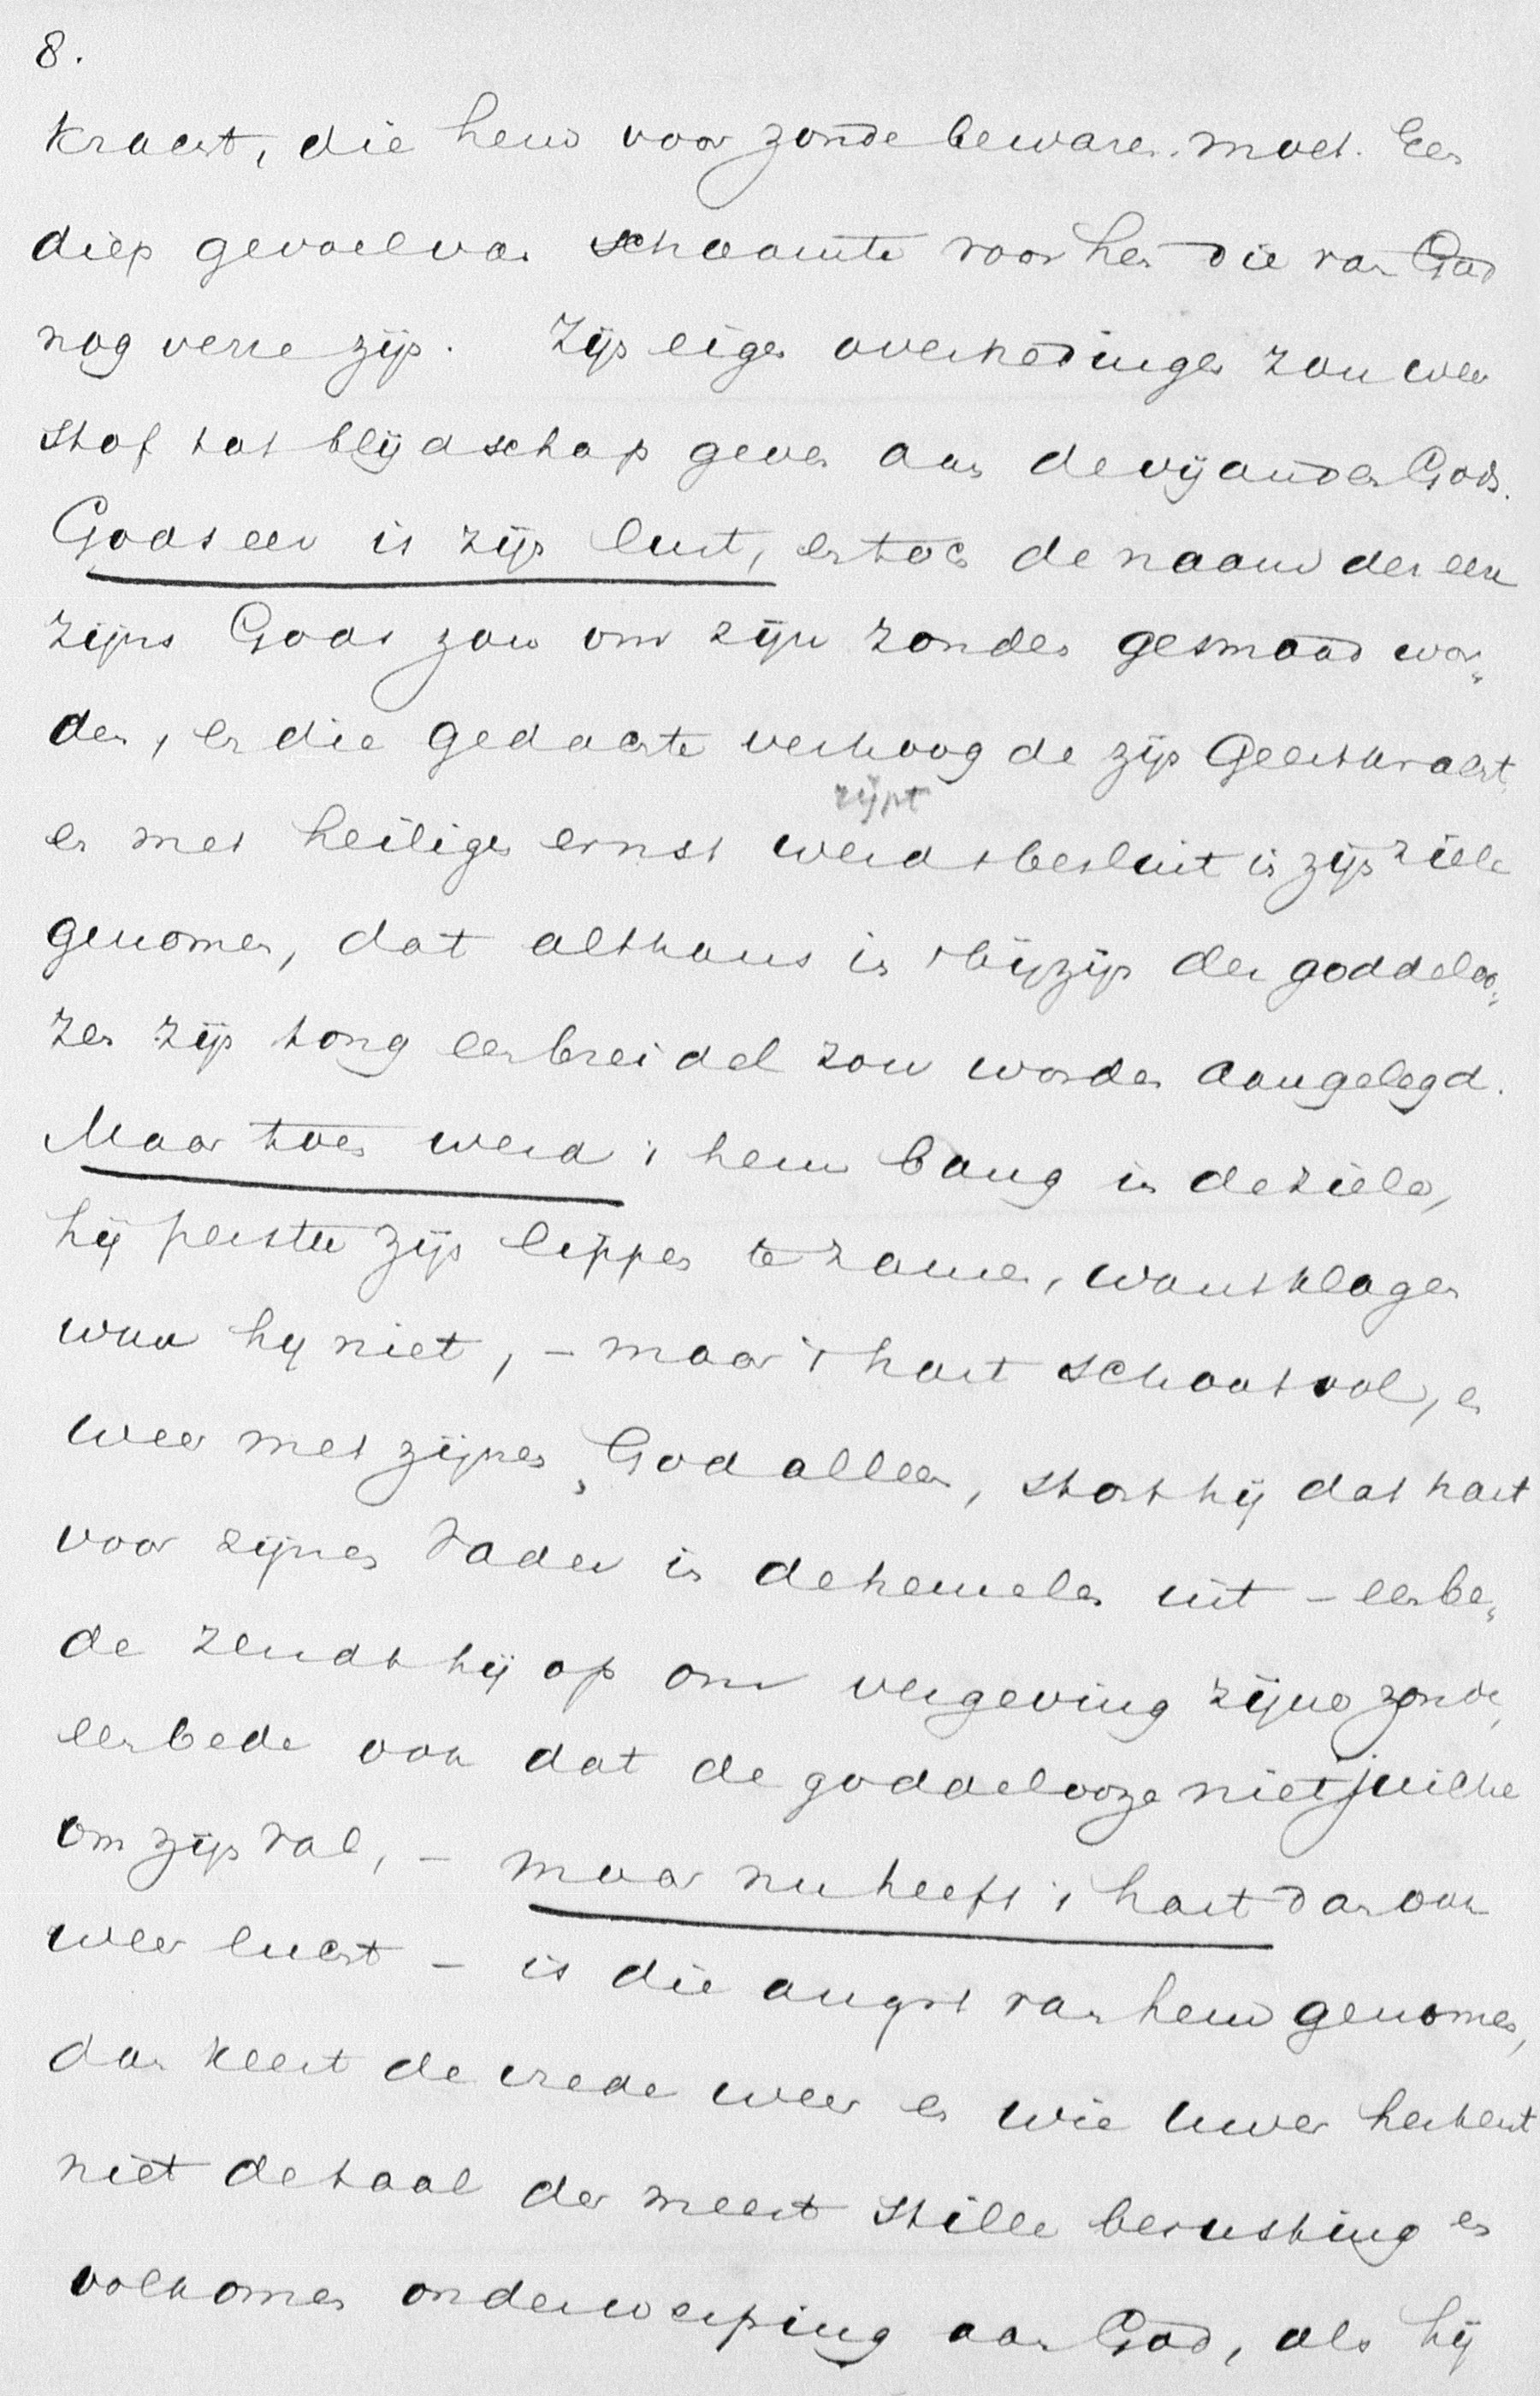 8.
kracht, die hem voor zonde bewaren moet. Een
diep gevoel van schaamte voor hen die van God
nog verre zijn. Zijn eigen overtredingen zou weer
stof tot blijdschap geven aan de vijanden Gods.
Gods eer is zijn lust, en toch de naam der eere
zijns Gods zou om zijne zonden gesmaad wor„
den, en die gedachte verhoogde zijn Geestkracht
zijnt
en met heiligen ernst werd 't besluit in zijn ziele
genomen, dat althans in 't bijzijn der goddeloo„
zen zijn tong een breidel zou worden aangelegd.
Maar toen werd 't hem bang in de ziele,
hij perste zijn lippen te zamen, want klagen
wou hij niet, – maar 't hart schoot vol, en
weer met zijnen God alleen, stort hij dat hart
voor zijnen Vader in de hemelen uit – een be„
de zendt hij op om vergeving zijne zonde,
een bede ook dat de goddelooze niet juiche
om zijn val, – maar nu heeft 't hart dan ook
weer lucht – is die angst van hem genomen,
dan keert de vrede weer en wie uwer herkent
niet de taal der meest stille berusting en
volkomen onderwerping aan God, als hij